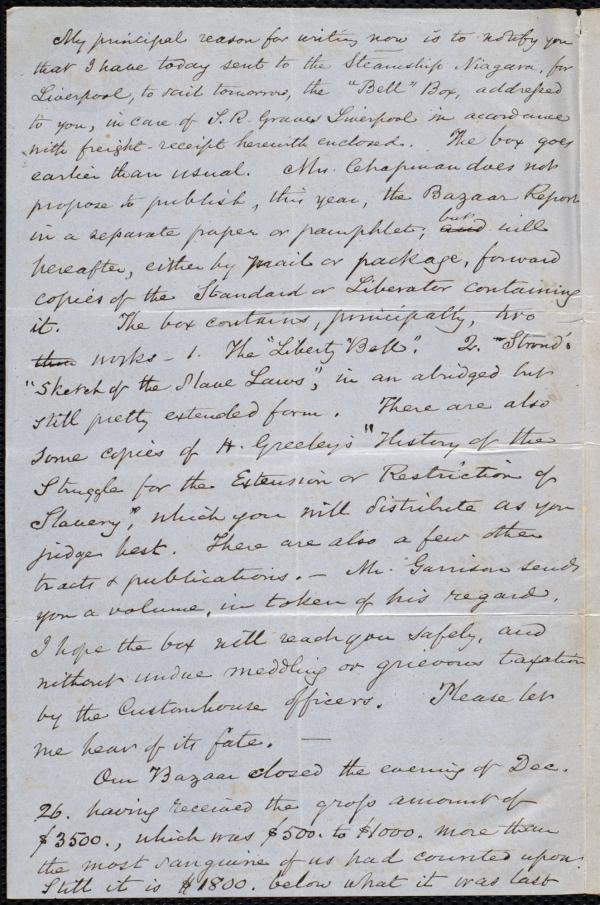 My principal reason for writing now is to notify you
that I have today sent to the Steamship Niagara, for
Liverpool, to sail tomorrow, the "Bell" Box, addressed
to you, in care of S. R. Graves Liverpool in accordance
with freight-receipt herewith enclosed. The box goes
earlier than usual. Mrs. Chapman does not
propose to publish, this year, the Bazaar Report
in a separate paper or pamphlet; and but will
hereafter, either by mail or package, forward
copies of the Standard or Liberator containing
it. The box contains, principally, two
works - 1. The "Liberty Bell". 2. "Stroud's
"Sketch of the Slave Laws", in an abridged but
still pretty extended form. There are also
some copies of H. Greeley's "History of the
Struggle for the Extension or Restriction of
Slavery", which you will distribute as you
judge best. There are also a few other
tracts & publications. - Mr. Garrison sends
you a volume, in token of his regard.
I hope the box will reach you safely, and
without undue meddling or grievous taxation
by the Customhouse officers. Please let
me hear of its fate. —
Our Bazaar closed the evening of Dec.
26. having received the gross amount of
$3500., which was $500. to $1000. more than
the most sanguine of us had counted upon.
Still it is $1800. below what it was last